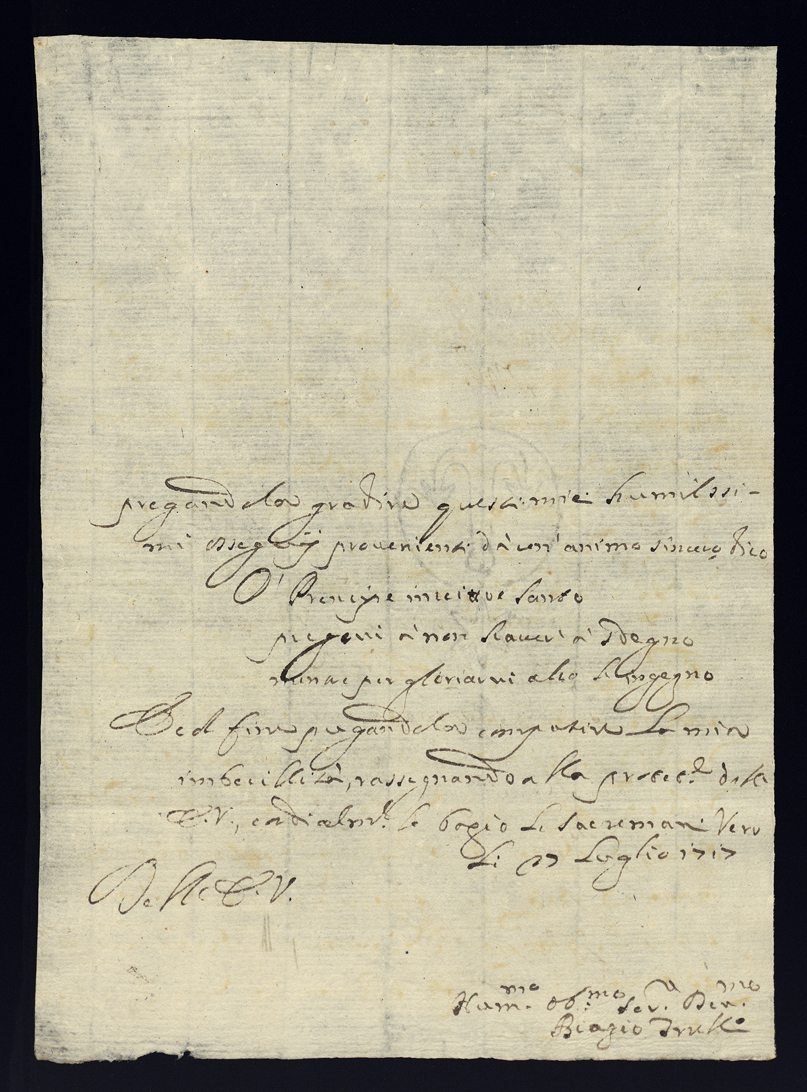 pregandola gradire questi miei humilissi-
mi ossequij provenienti da un'animo sincero, dico
O' Prencipe
pregovi à non haver à sdegno
per gloriarvi alto ingegno
Ed al fine pregandola compatire la mia
imbecillità, rassegnando alla protet.e della
E.V., cordialm.te le bagio le sacre mani Vero
li 27 Luglio 1717
Della E.V.
Hum.mo Ob.mo Ser.a Dev.mo
Biagio